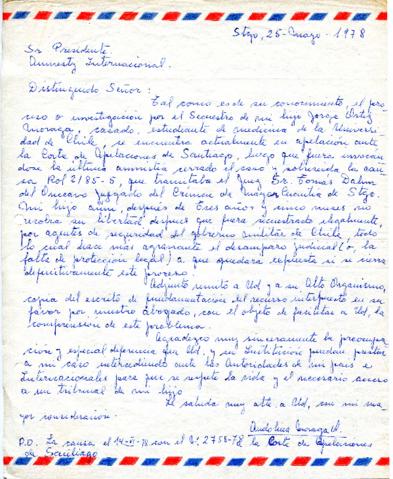 Stgo, 25-mayo-1978
Sr. Presidente.
Amnesty Internacional.
Distinguido Señor:
Tal como es de su conocimiento, el pro-
ceso o investigación por el Secuestro de mi hijo Jorge Ortiz
Moraga, casado, estudiante de medicina de la Universi-
dad de Chile se encuentra actualmente en apelación ante
la Corte de Apelaciones de Santiago, luego que fuera invocan-
dose la última amnistía cerrado el caso y sobreseída la causa
Rol 2185-5, que tramitaba el Juez Sr. Tomás Dahm
del Onceavo Juzgado del Crimen de Mayor Cuantía de Stgo.
Mi hijo aún, después de tres años y cinco meses no
recobra su libertad después que fuera secuestrado ilegalmente,
por agentes de seguridad del gobierno militar de Chile, todo
lo cual hace más agravante el desamparo judicial (o, la
falta de protección legal) a que quedara expuesto si se cierra
definitivamente este proceso.
Adjunto remito a Ud y a su Alto Organismo,
copia del escrito de fundamentación del recurso interpuesto en su
favor por nuestro abogado, con el objeto de facilitar a Ud, la
comprensión de este problema.
Agradezco muy sinceramente la preocupa-
ción y especial diferencia que Ud, y su Institución puedan prestar
a mi caso intercediendo ante las Autoridades de mi país e
Internacionales para que se respete la vida y el necesario acceso
a un tribunal de mi hijo.
Le saluda muy atte. a Ud, con mi ma-
yor consideración.
Moraga
P.D. La causa el 14- -78 con el Nº 2758-78 la Corte de Apelaciones
de Santiago